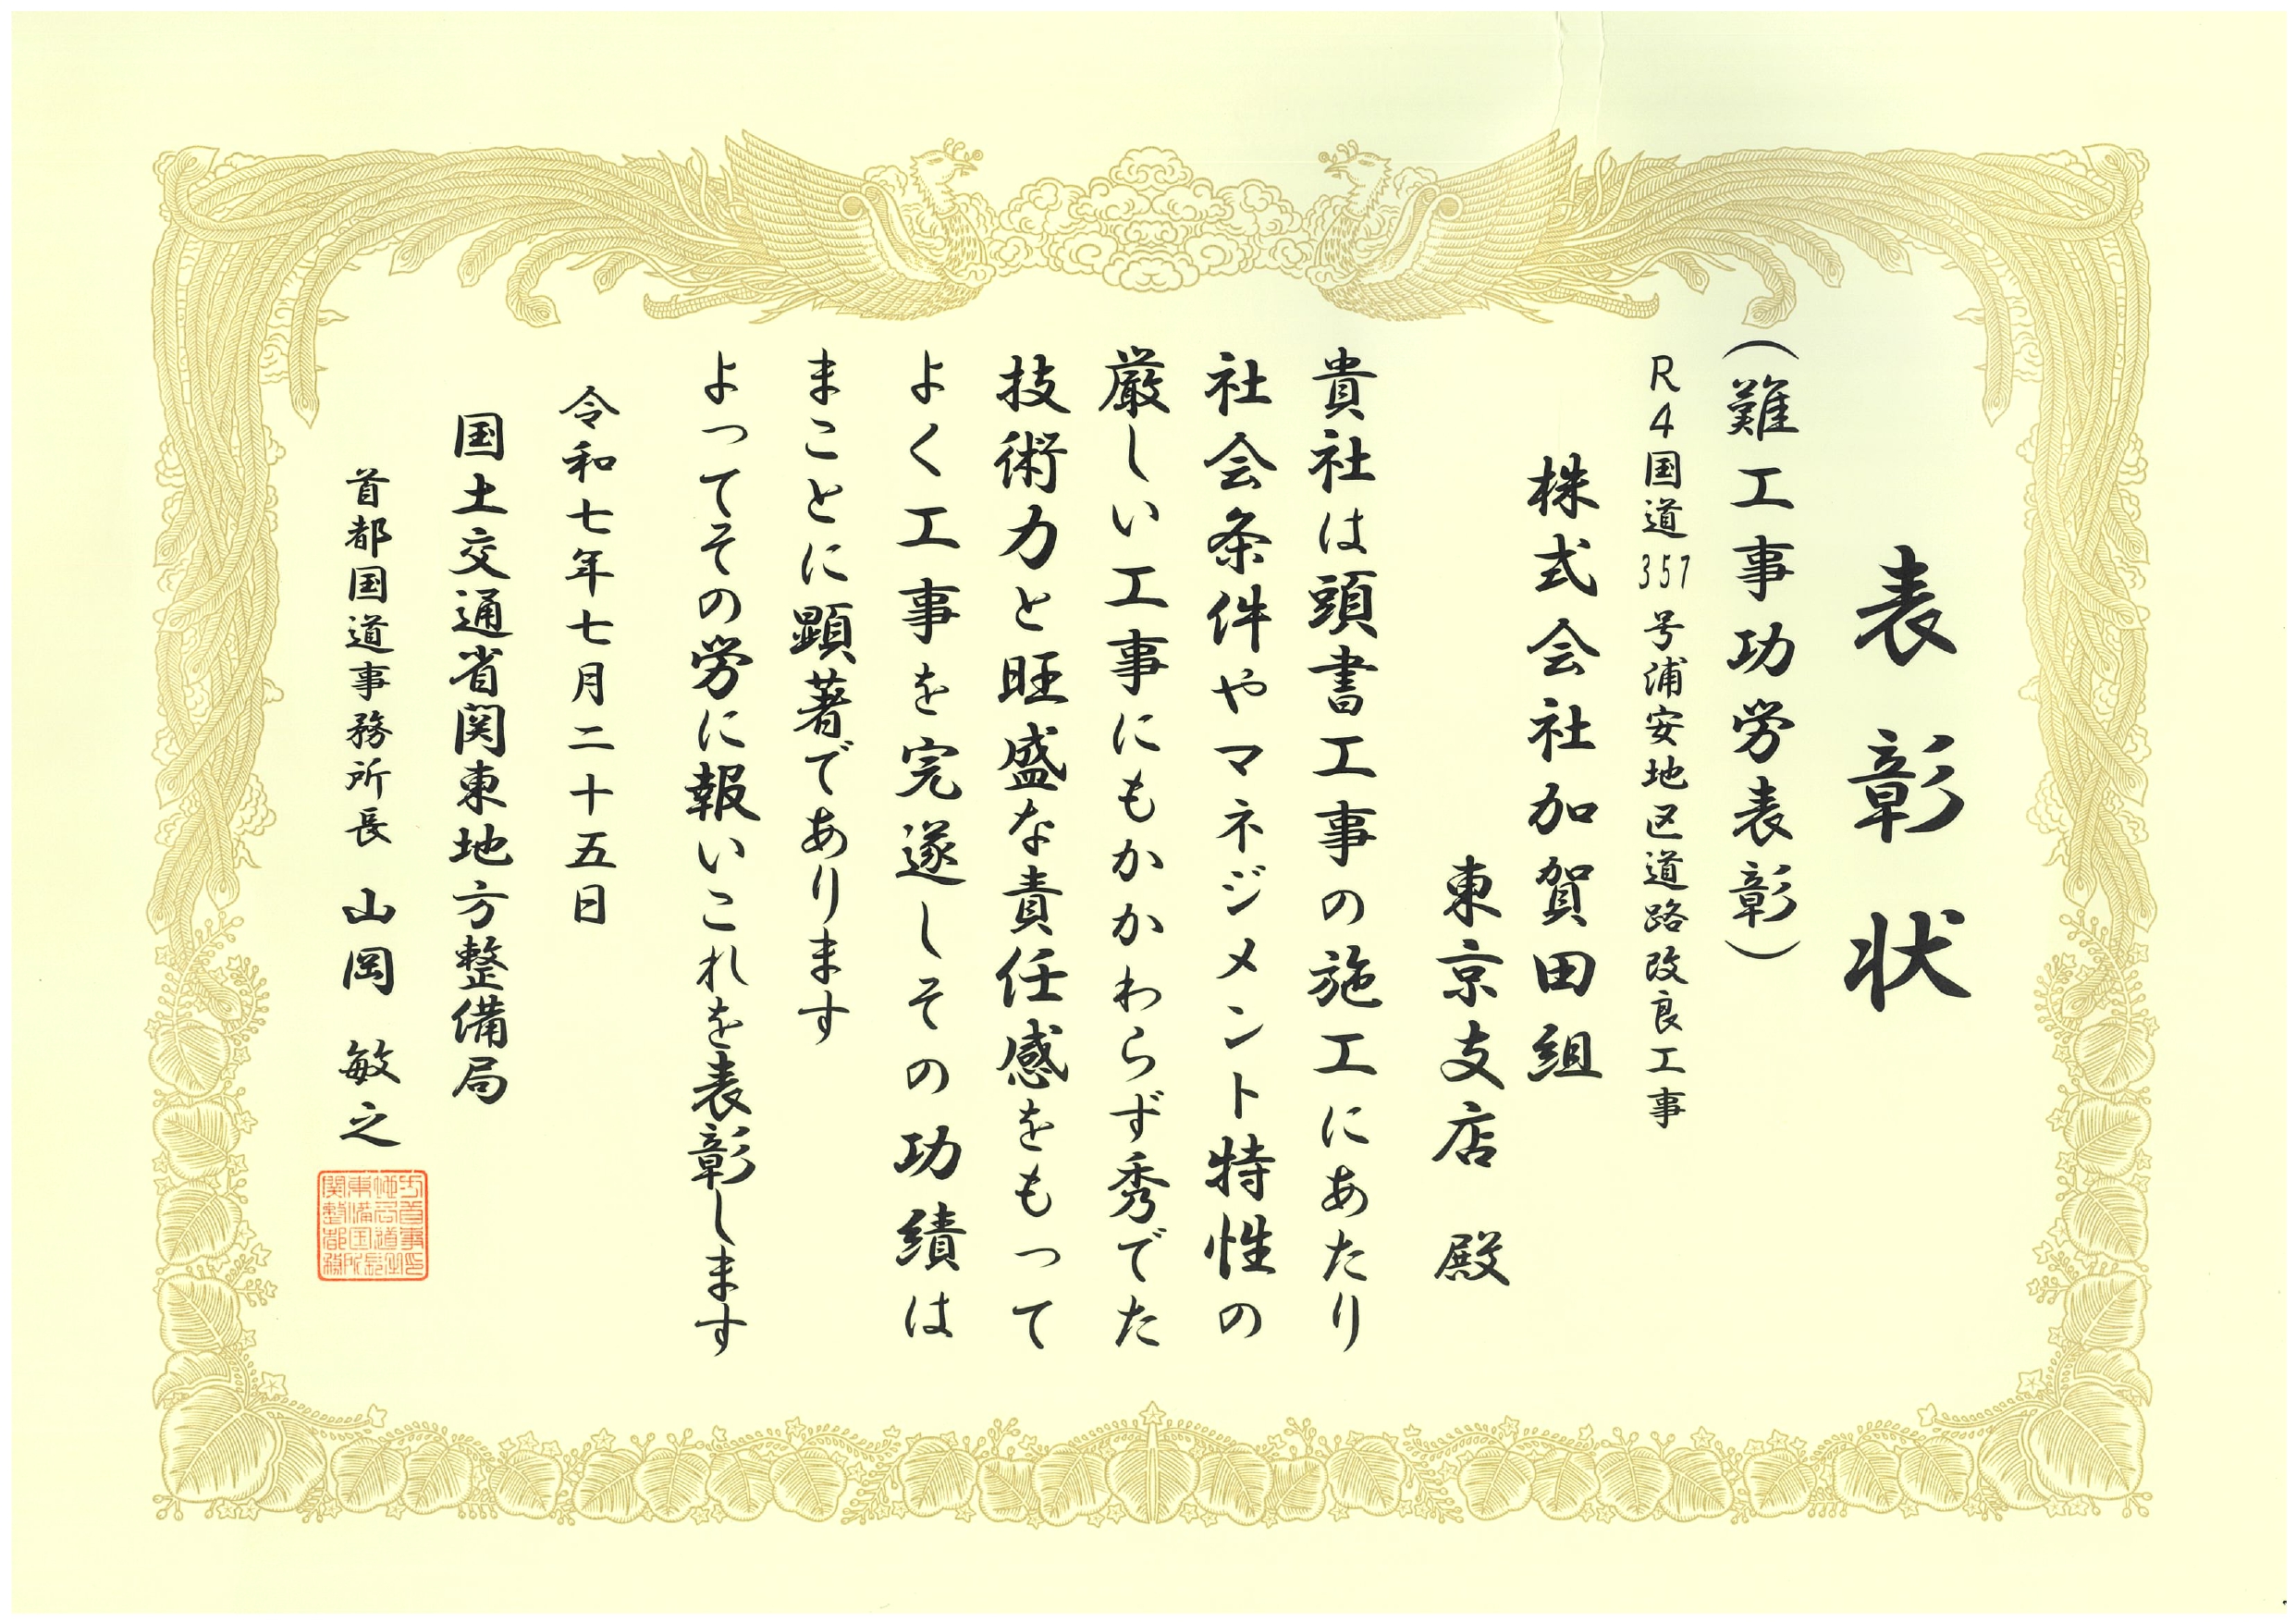 表彰状
(難工事功労表彰)
R4国道357号浦安地区道路改良工事
株式会社加賀田組
東京支店 殿
貴社は頭書工事の施工にあたり
社会条件やマネジメント特性の
厳しい工事にもかかわらず秀でた
技術力と旺盛な責任感をもって
よく工事を完遂しその功績は
まことに顕著であります
よってその労に報いこれを表彰します
令和七年七月二十五日
国土交通省関東地方整備局
首都国道事務所長 山岡 敏之
関東地方
整備局首
都国道事
務所長印